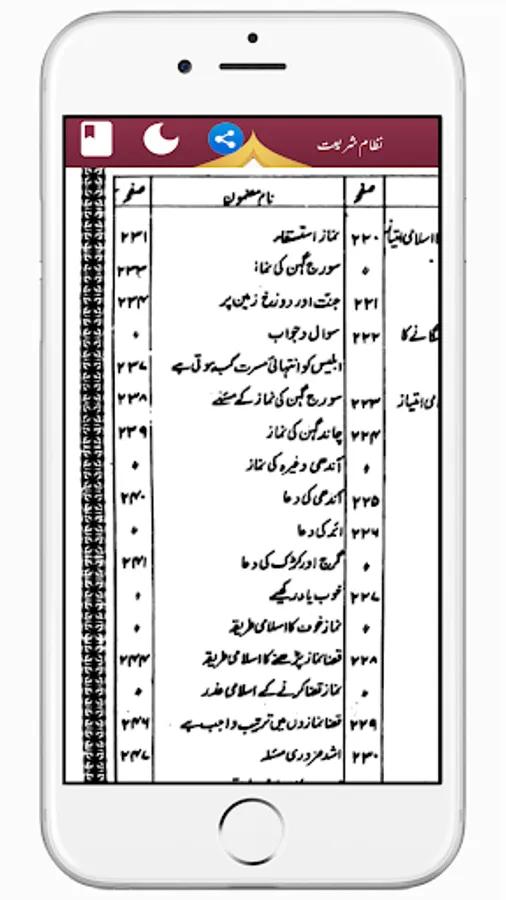 نظام شریعت
صفحہ نام مضمون صفحہ
اسلامی امتیاز ۲۲۰ نماز استسقاء ۲۳۱
۰ سورج گہن کی نماز ۲۳۳
۲۲۱ جنّت اور دوزخ زمین پر ۲۳۴
گانے کا ۲۲۲ سوال و جواب ۰
ابلیس کو انتہائی مسرت کب ہوتی ہے ۲۳۷
می امتیاز ۲۲۳ سورج گہن کی نماز کے مسئلے ۲۳۸
۲۲۴ چاند گہن کی نماز ۲۳۹
۰ آندھی وغیرہ کی نماز ۰
۲۲۵ آندھی کی دعا ۲۴۰
۲۲۶ ابر کی دعا ۰
۰ گرج اور کڑک کی دعا ۲۴۱
۲۲۷ خوب یاد رکھیے ۰
۰ نماز خوف کا اسلامی طریقہ ۰
۲۲۸ قضا نماز پڑھنے کا اسلامی طریقہ ۲۴۴
۰ نماز قضا کرنے کے اسلامی عذر ۰
۲۲۹ قضا نمازوں میں ترتیب واجب ہے ۲۴۶
۲۳۰ اشد ضروری مسئلہ ۲۴۷